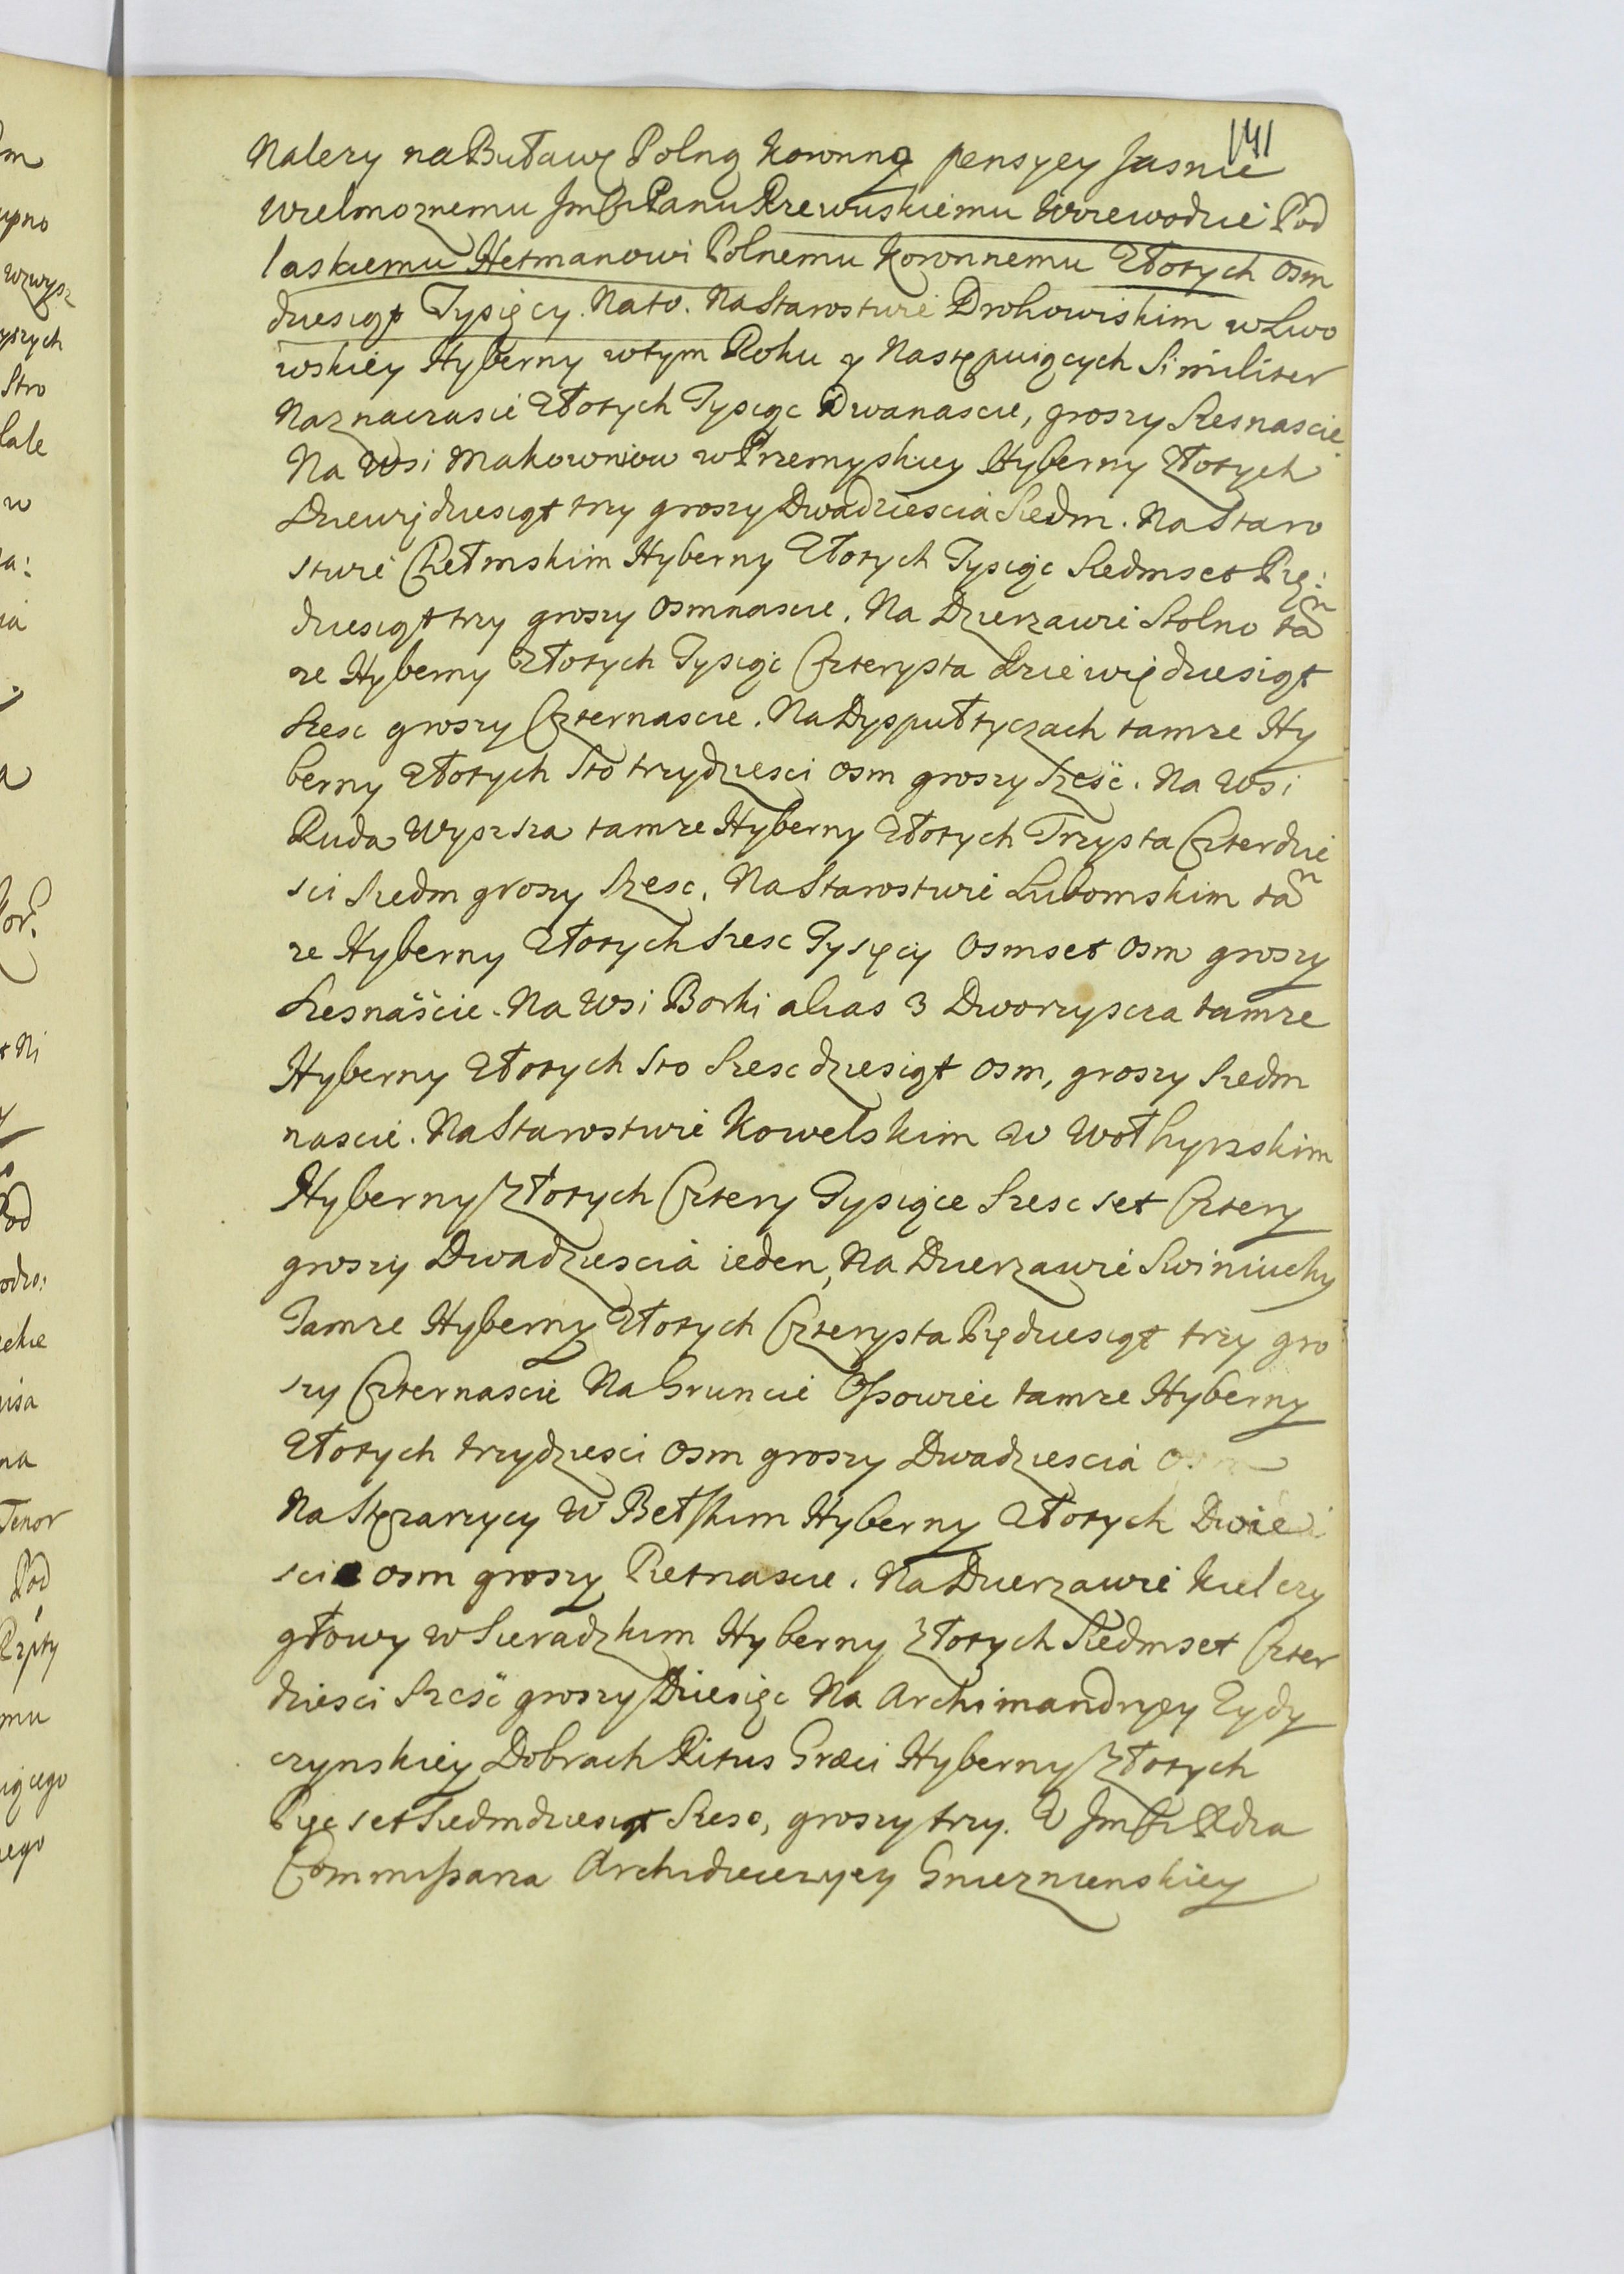 141
Nalezy na Buławę Polną koronną pensyey Jasnie
wielmoznemu Jmści Panu Rzewuskiemu Woiewodzie Pod
laskiemu Hetmanowi Polnemu koronnemu Złotych osm
dziesiąt Tysięcy. Na to. Na Starostwie Drohowiskim w Lwo
wskiey Hyberny w tym Roku y Następuiących Similiter
Naznacza sie Złotych Tysiąc Dwanascie, groszy Szesnascie
Na Wsi Makowniow w Przemyskiey Hyberny Złotych
Dziewiędziesiąt trzy groszy Dwadziescia Siedm. Na Staro
stwie Chełmskim Hyberny Złotych Tysiąc Siedmset Pię:
dziesiąt trzy groszy osmnascie. Na Dzierzawie Stolno tam
ze Hyberny Złotych Tysiąc Czterysta dziewiędziesiąt
szesc groszy Czternascie. Na Dysputtyczach tamze Hy
berny Złotych sto trzydziesci osm groszy Szesć. Na Wsi
Ruda Wyzsza tamze Hyberny Złotych Trzysta Czterdzie
sci Siedm groszy Szesc. Na Starostwie Lubomskim tam
ze Hyberny Złotych szesc Tysięcy osmset osm groszy
Szesnaście. Na Wsi Borki alias 3 Dworzyscza tamze
Hyberny Złotych sto Szesc dziesiąt osm, groszy Siedm
nascie. Na Starostwie Kowelskim w Wołhynskim
Hyberny Złotych Cztery Tysiące Szesc set Cztery
groszy Dwadziescia ieden, Na Dzierzawie Swiniuchy
Tamze Hyberny Złotych Czterysta Piędziesiąt trzy gro
szy Czternascie Na Gruncie Ossowiec tamze Hyberny
Złotych trzydziesci osm groszy Dwadziescia osm
Na Stęzarzycy w Bełskim Hyberny Złotych Dwie
scie osm groszy Pietnascie. Na Dzierzawie Kielczy
głowy w Sieradzkim Hyberny Złotych Siedmset Czter
dziesci Szesć groszy Dziesięc Na Archimandryey Zydy
czynskiey Dobrach Ritus Græci Hyberny Złotych
Pięc set Siedmdziesiąt Szesc, groszy trzy. U Jmści Xdza
Commissarza Archidiecezyey Gnieznienskiey